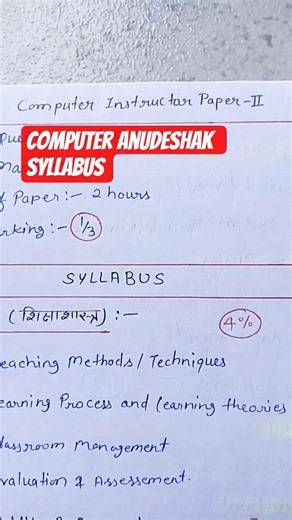 Computer Instructor Paper-II
COMPUTER ANUDESHAK
SYLLABUS
Paper:- 2 hours
1/3
SYLLABUS
(शिक्षाशास्त्र) :- 4%
Teaching Methods / Techniques
Learning Process and learning theories
Classroom Management
Evaluation & Assessement.